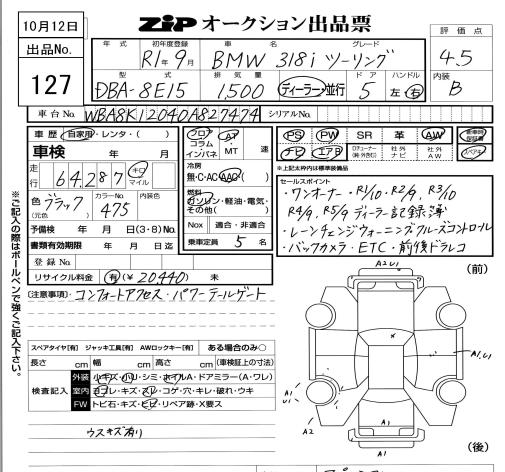 10月12日
出品No.
127
ZIP オークション出品票
評価点
4.5
内装
B
年式 初年度登録 車名 グレード
R1年9月 BMW 318i ツーリング
型式 排気量 ドア ハンドル
DBA-8E15 1,500 ディーラー・並行 5 左・右
車台No. WBA8K12040A827474 シリアルNo.
車歴 自家用・レンタ・( )
車検 年 月
走行 64,287 キロ マイル
色 (元色) ブラック カラーNo. 475 内装色
予備検 年 月 日(3・8)No.
書類有効期限 年 月 日迄
登録No.
リサイクル料金 有(¥20,440) 未
フロア コラム インパネ AT・MT 速
冷房
無・C・AC・AAC
燃料
ガソリン・軽油・電気・その他( )
Nox 適合・非適合
乗車定員 5 名
PS PW SR 革 AW
ナビ エアB 社外ナビ 社外AW
*上記太枠内は標準装備品
セールスポイント
・ワンオーナー・R1/10・R2/9、R3/10
R4/9、R5/9 ディーラー記録簿
・レーンチェンジウォーニング・クルーズコントロール
・バックカメラ・ETC・前後ドラレコ
※ご記入の際はボールペンで強くご記入下さい。
注意事項: ・コンフォートアクセス・パワーテールゲート
スペアタイヤ[有] ジャッキ工具[有] AWロックキー[有] ある場合のみ○
長さ cm 幅 cm 高さ cm (車検証上の寸法)
検査記入
外装 小キズ・小凹・シミ・ホイルA・ドアミラー(A・ワレ)
室内 ヨゴレ・キズ・スレ・コゲ・穴・キレ・破れ・ウキ
FW トビ石・キズ・ヒビ・リペア跡・X要ス
ウスキズ有り
(前)
A2 U1
A1、U1
A1
U1
A2
A1
(後)